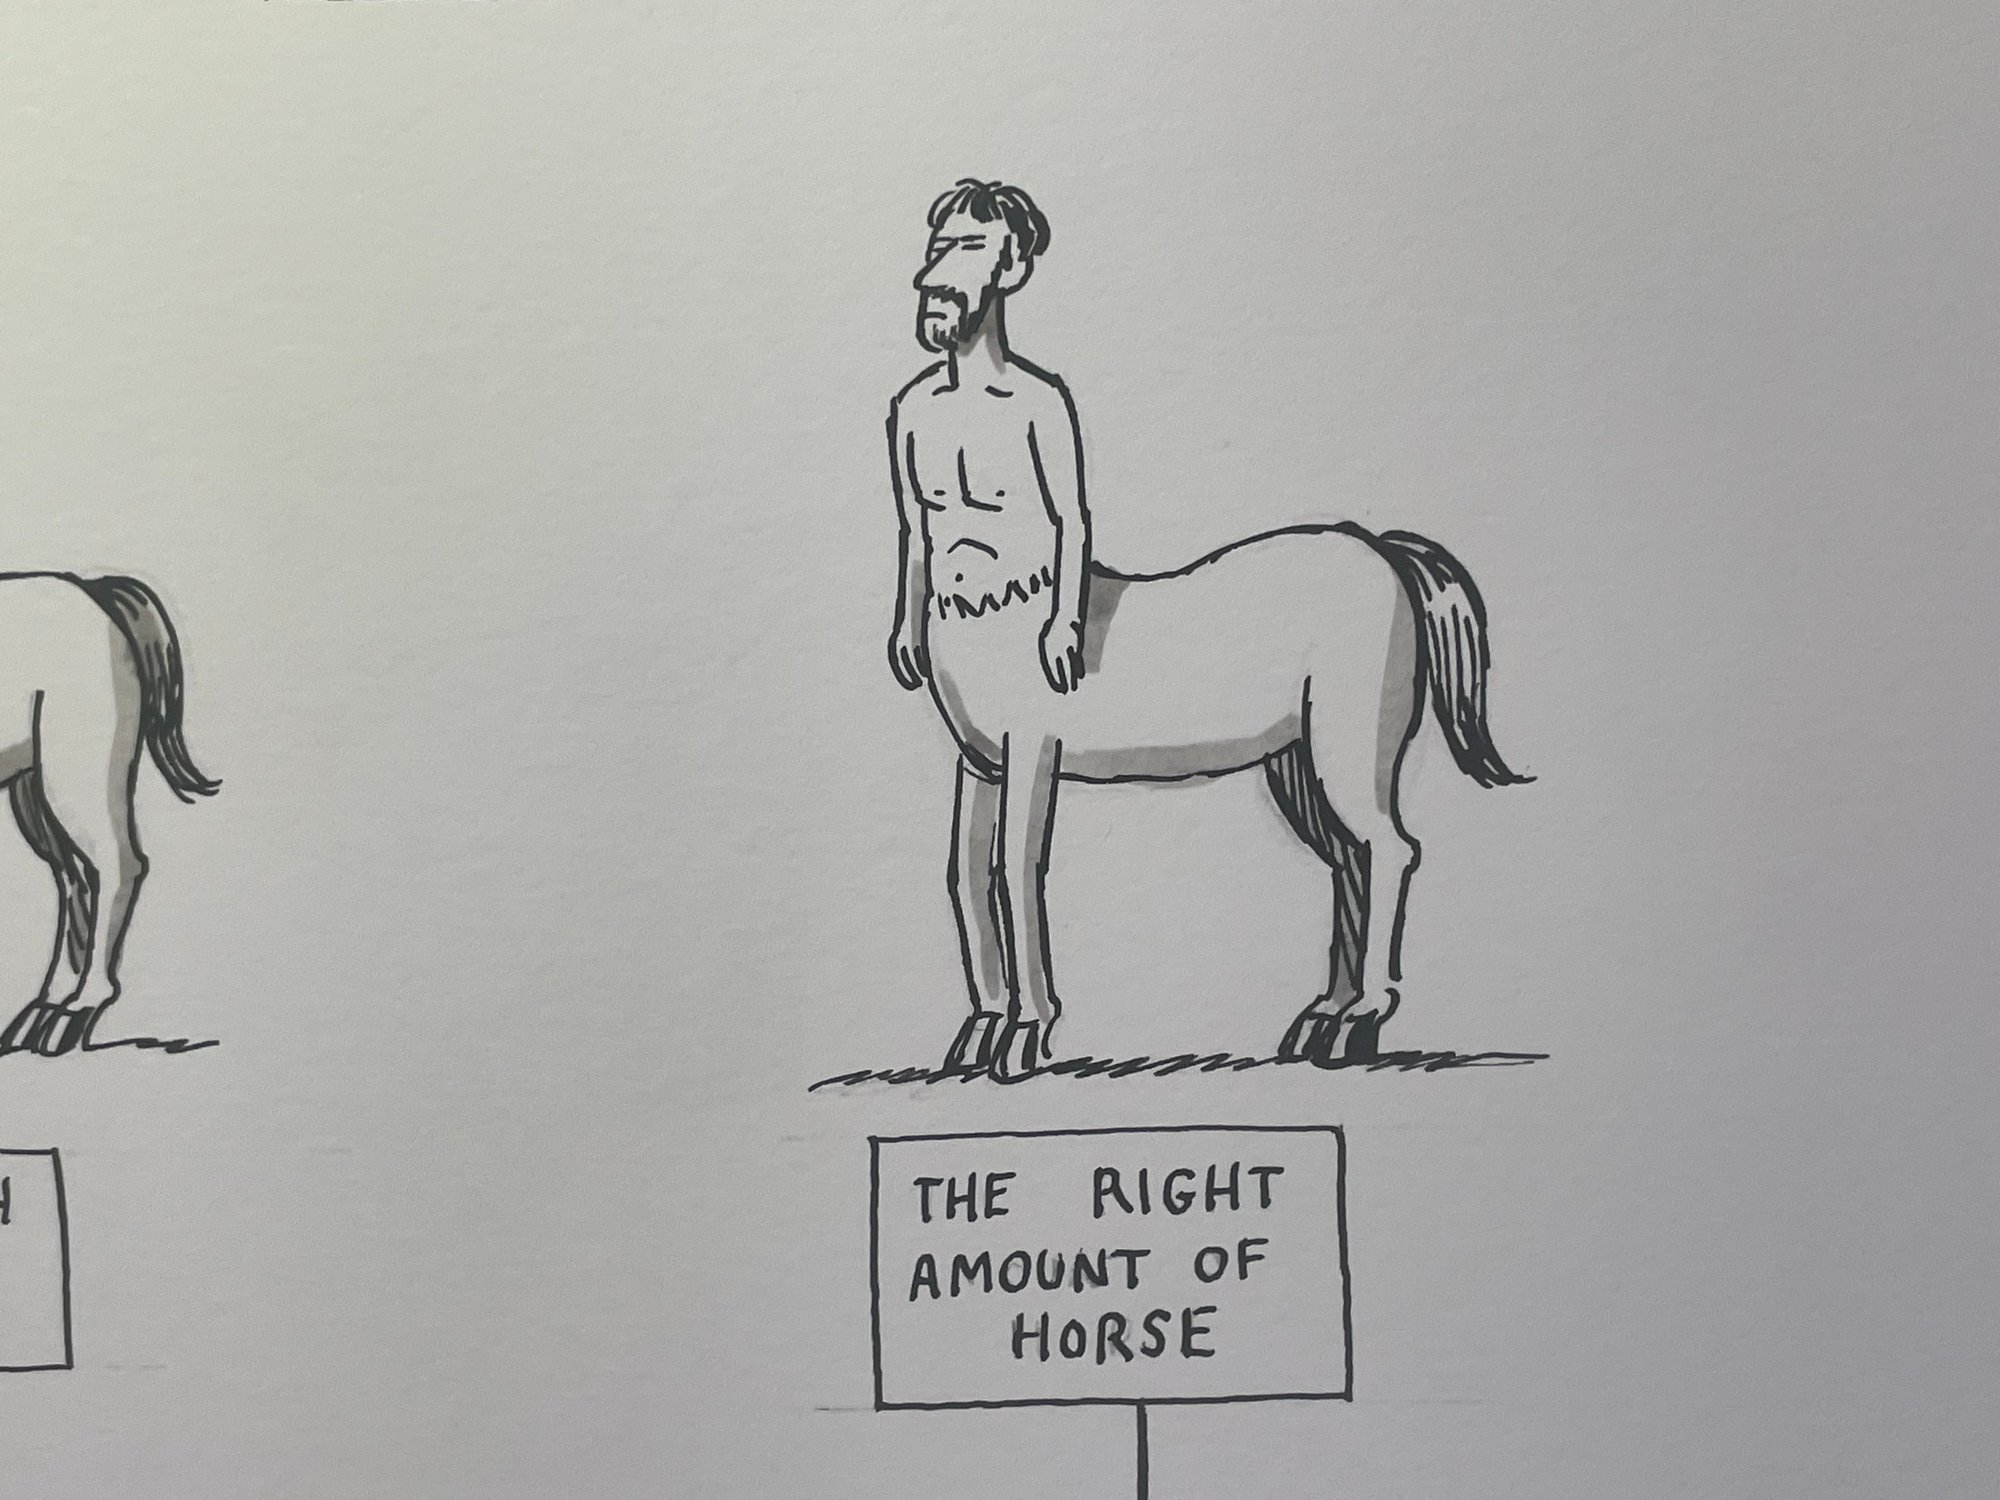 THE RIGHT
AMOUNT OF
HORSE